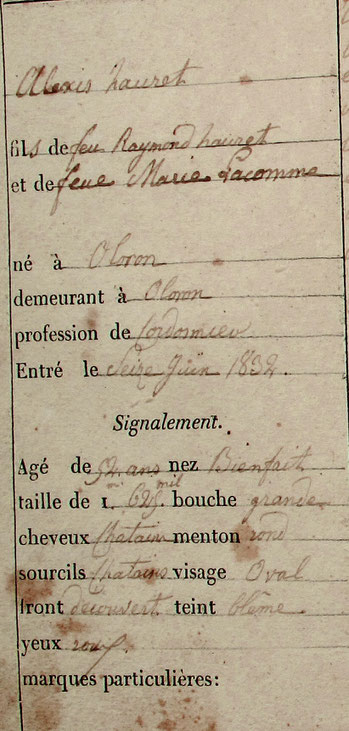 Alexis hauret
fils de feu Raymond hauret
et de feue Marie Lacomme
né à Oloron
demeurant à Oloron
profession de Cordonnier
Entré le Seize Juin 1832.
Signalement.
Agé de ans nez Bienfait
taille de 1. m mil bouche grande
cheveux Chatain menton rond
sourcils Chatains visage Oval
front découvert teint blême
yeux roux
marques particulières: